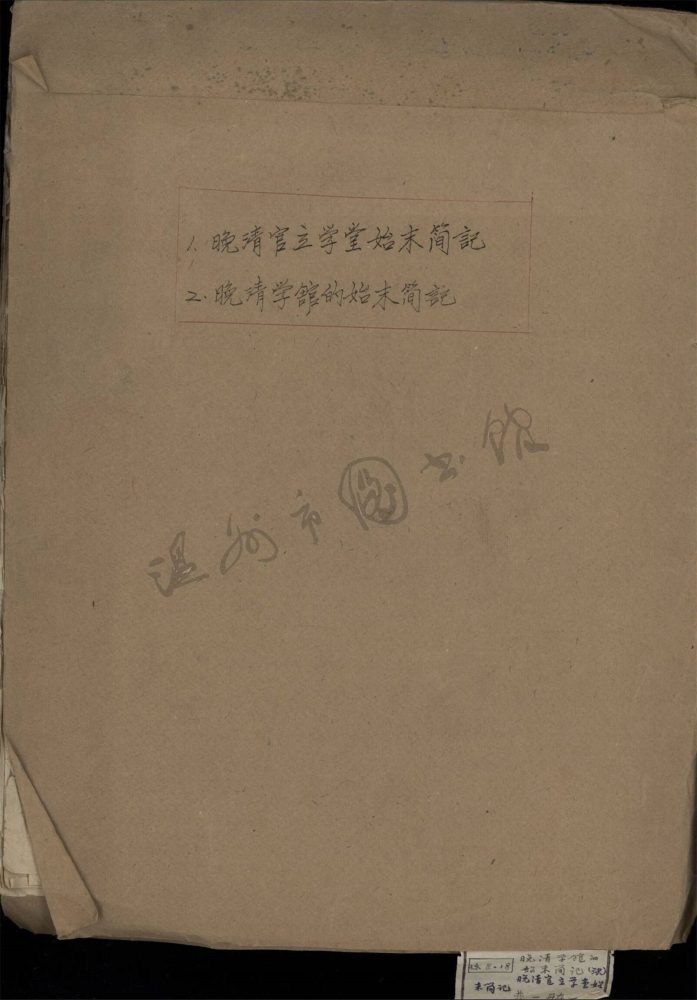 1. 晚清官立学堂始末简記
2. 晚清学館的始末简記
温州市圖书館
晚清学馆的
始末简记
晚清官立学堂始
末简记